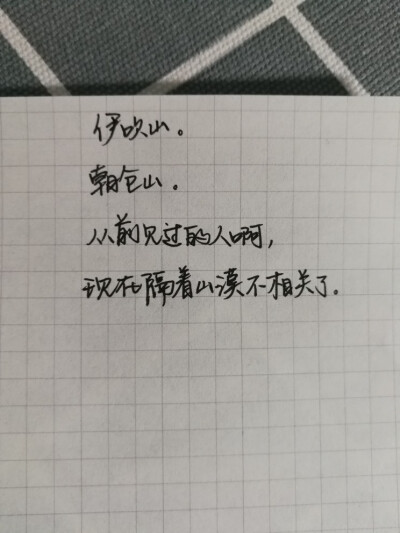 伊吹山。
朝仓山。
从前见过的人啊,
现在隔着山漠不相关了.